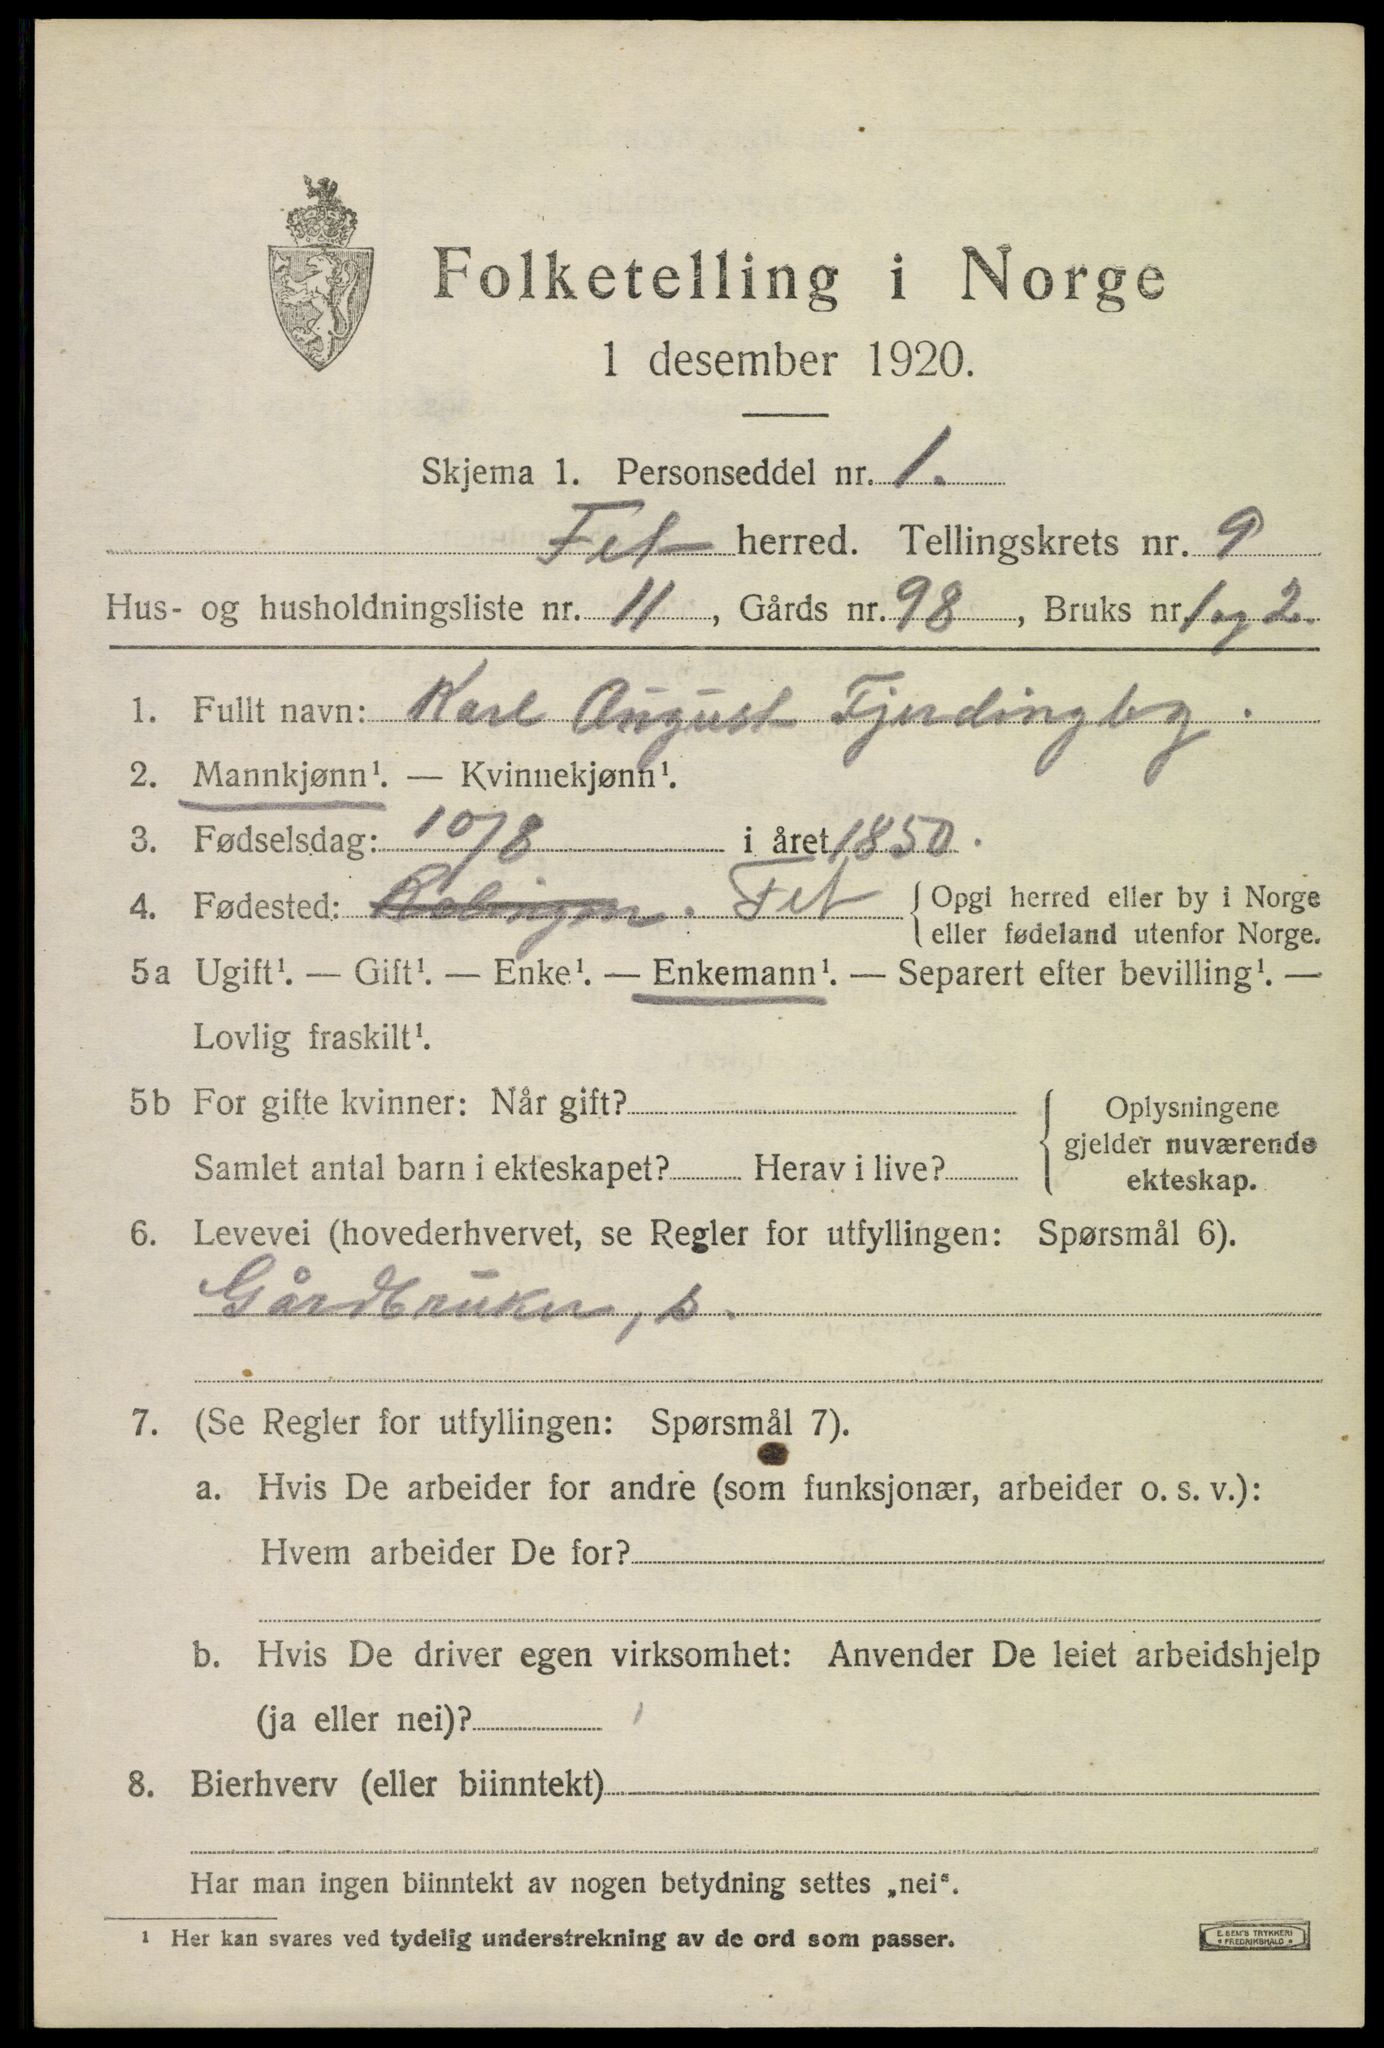 Folketelling i Norge
1 desember 1920.
Skjema 1. Personseddel nr. 1.
Fet herred. Tellingskrets nr. 9
Hus- og husholdningsliste nr. 11, Gårds nr. 98, Bruks nr. 1 og 2.
1. Fullt navn: Karl August Fjerdingby.
2. Mannkjønn¹. — Kvinnekjønn¹.
3. Fødselsdag: 10/8 i året 1850.
4. Fødested: Fet { Opgi herred eller by i Norge
eller fødeland utenfor Norge.
5a Ugift¹. — Gift¹. — Enke¹. — Enkemann¹. — Separert efter bevilling¹. —
Lovlig fraskilt¹.
5b For gifte kvinner: Når gift?
Samlet antal barn i ekteskapet? Herav i live?
Oplysningene
gjelder nuværende
ekteskap.
6. Levevei (hovederhvervet, se Regler for utfyllingen: Spørsmål 6).
Gårdbruker, s.
7. (Se Regler for utfyllingen: Spørsmål 7).
a. Hvis De arbeider for andre (som funksjonær, arbeider o. s. v.):
Hvem arbeider De for?
b. Hvis De driver egen virksomhet: Anvender De leiet arbeidshjelp
(ja eller nei)?
8. Bierhverv (eller biinntekt)
Har man ingen biinntekt av nogen betydning settes „nei“.
¹ Her kan svares ved tydelig understrekning av de ord som passer.
E. SEM'S TRYKKERI
FREDRIKSHALD